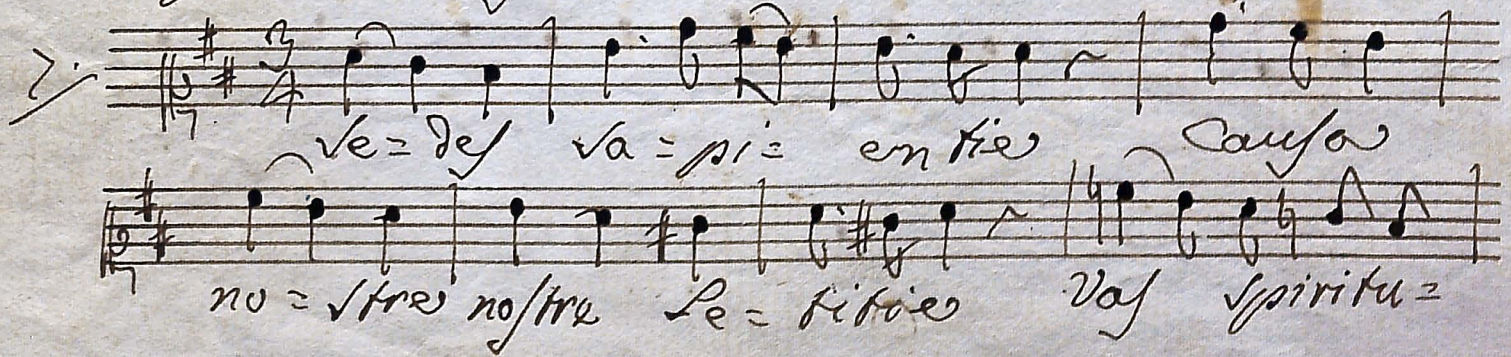 2. 3/4
Se= des Sa= pi= entie Causa
no= stre nostre Le= titie Vas Spiritu=